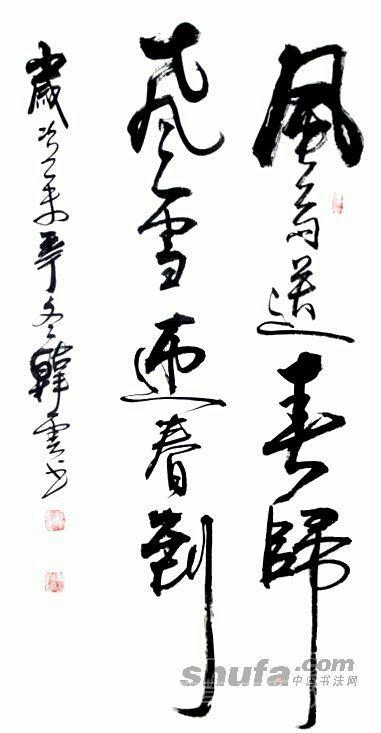 風雨送春歸
飛雪迎春到
歲次乙未冬韓雲书
shufa.com
中国书法网